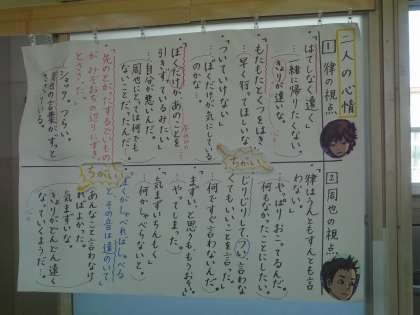 二人の心情
1 律の視点
「はてしなく遠く」
…一緒に帰りたくない。
きょりが遠いな。
「もたもたとくつをはき」
…早く行ってほしいな。
「ついていけない」
…ぼくだけが気にしている
のかな…。
「ぼくだけが、あのことを
引きずっているみたい」
…自分が悪いんだ。
周也にとっては何でも
ないことだ、だったんだ。
「先のとがったするどいものが
みぞおちの辺りにずき
っとささった。」
ショック。つらい。
周也の言葉がずっと
ちがい
2 周也の視点
「律はうんともすんとも言
わない。」
…やっぱりおこってるんだ。
何もなかったことにしたい。
「じりじりしてつい、言わな
くてもいいことを言った。」
…何ですぐ言わないんだ。
「まずい、と思うももうおそい」
…やってしまった。
「気まずいちんもく」
…何かしゃべらないと。
「ぼくがしゃべればしゃべる
ほど、その音は遠のいて」
あんなこと言わなけ
ればよかった。
気まずいな。
きょりがどんどん遠く
なっていくようだ…。
ちがい